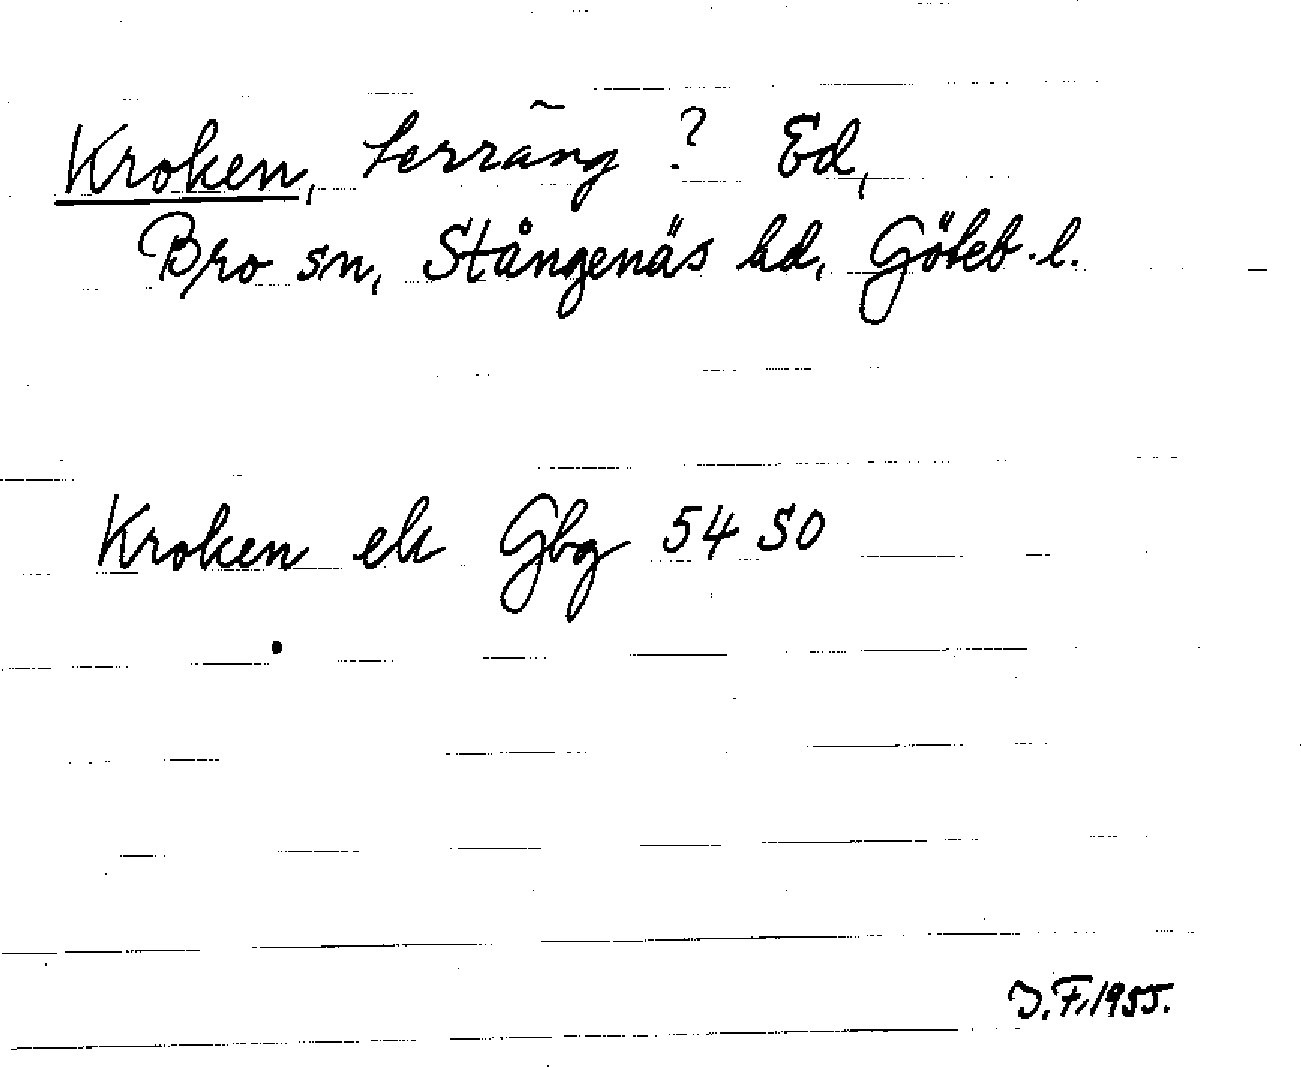 Kroken, terräng ? Ed,
Bro sn, Stångenäs hd, Göteb. l.
Kroken ek Gbg 54 SO
J. F. 1955.